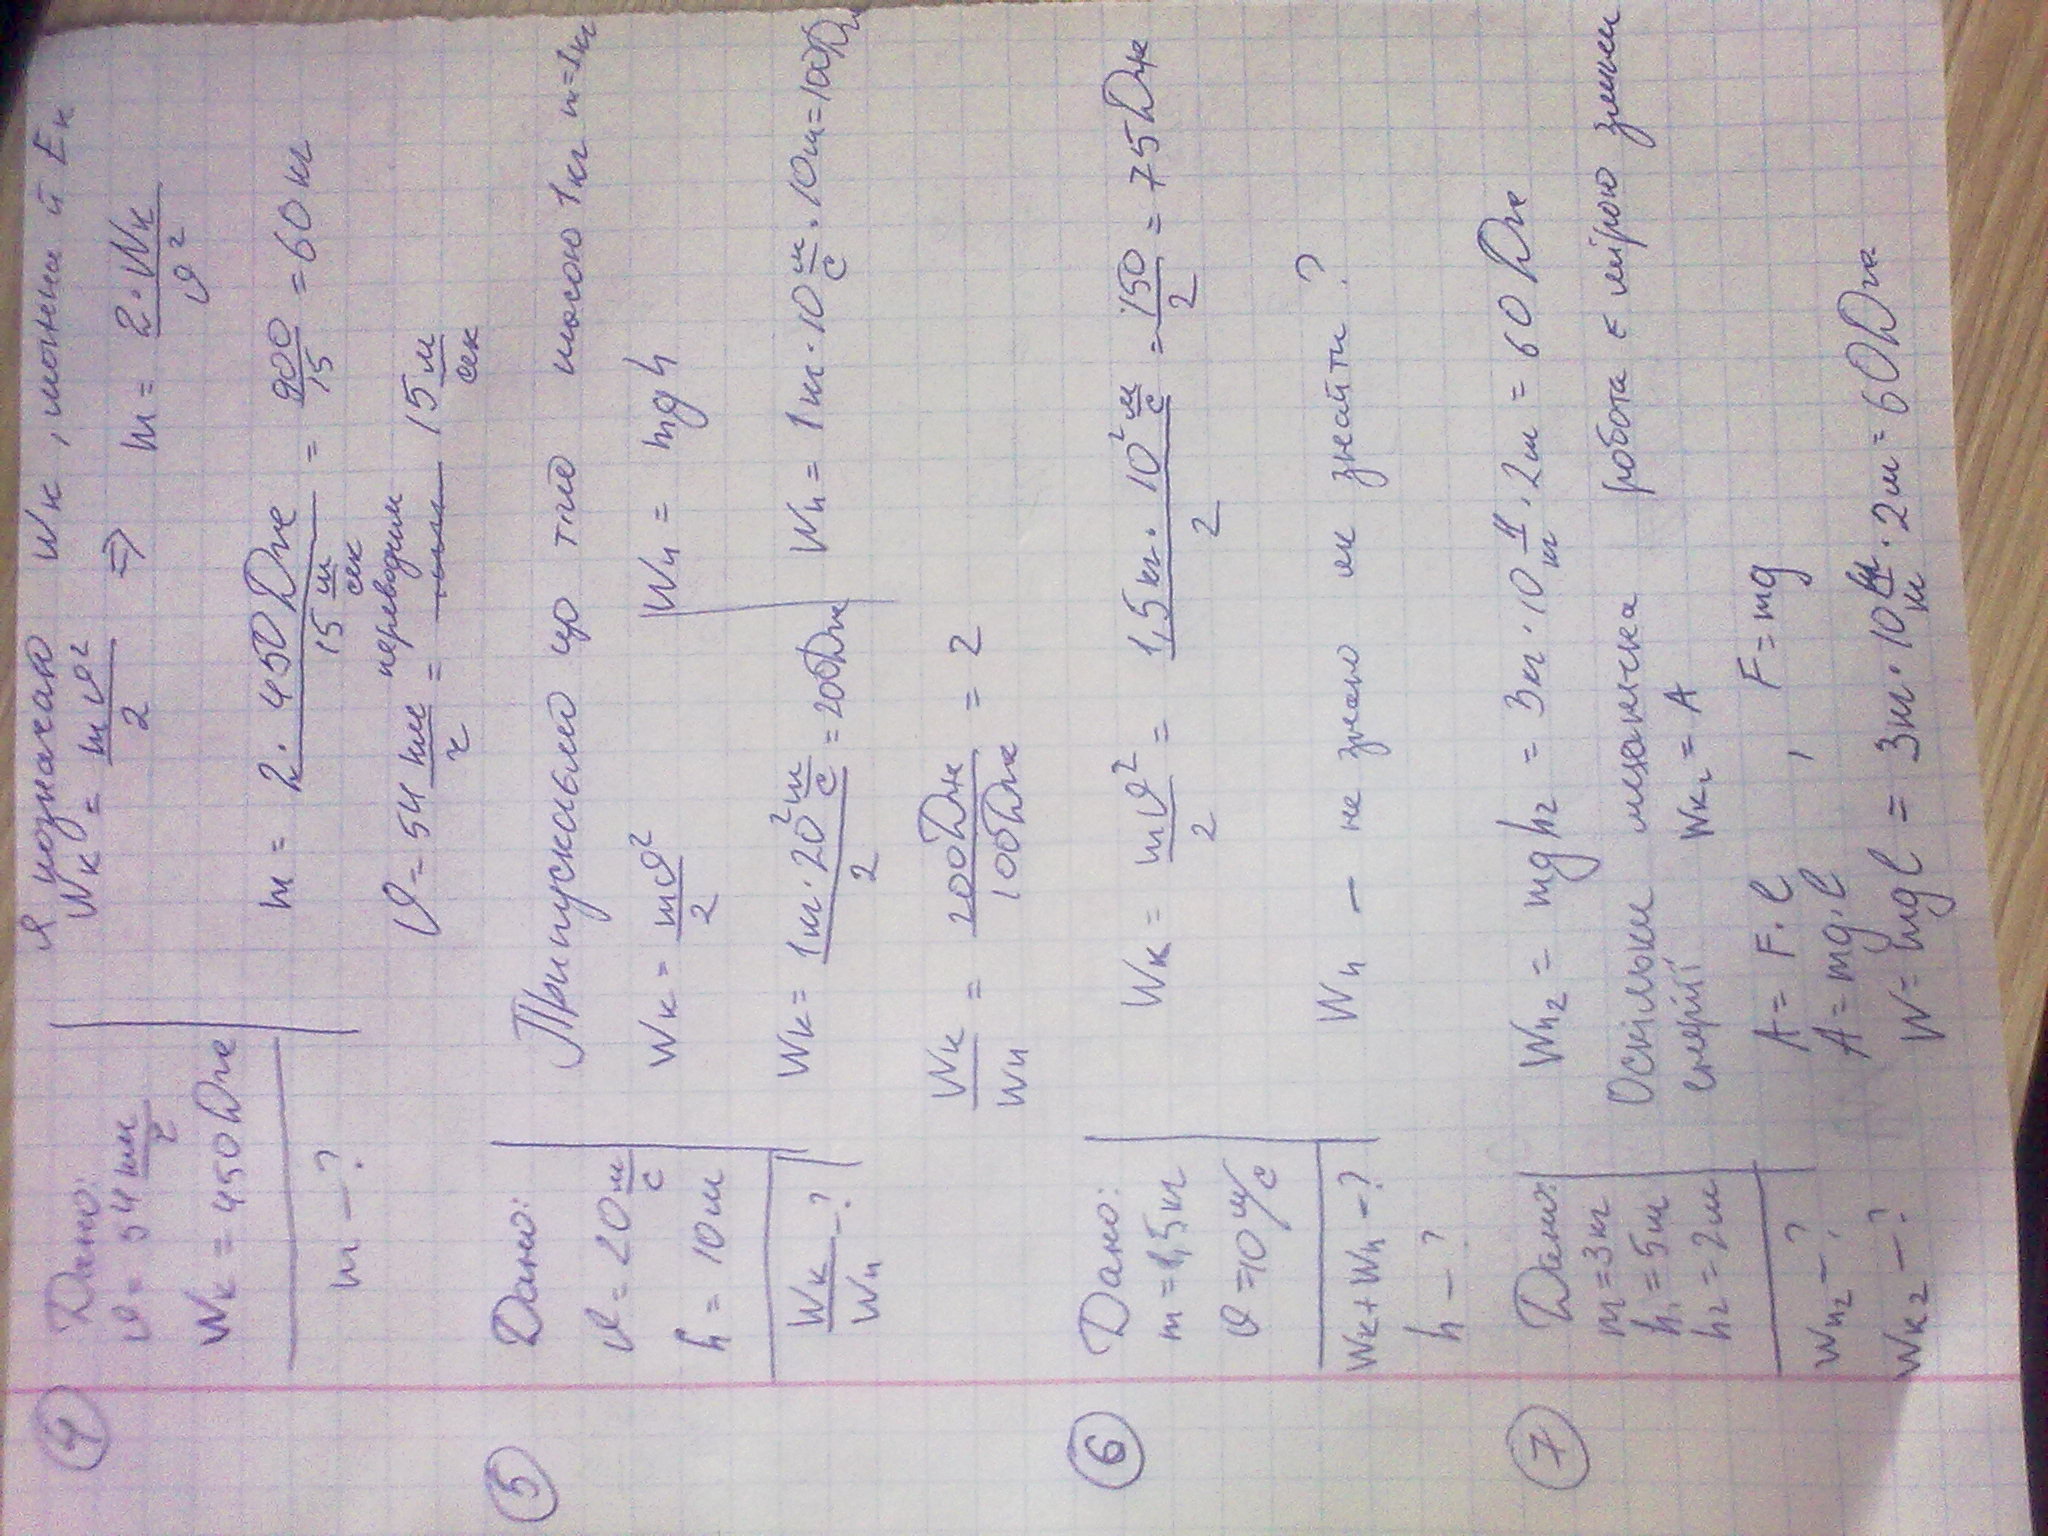 ④ Дано:
v = 54 км/г
Wк = 450 Дж
m – ?
я позначаю Wк, можна й Ек
Wк = mv²/2 ⇒ m = 2·Wк/v²
m = 2·450Дж/15 м/сек = 900/15 = 60 кг
переводим
v = 54 км/г = 15 м/сек
⑤ Дано:
v = 20 м/с
h = 10 м
Wк/Wп – ?
Припускаємо що тіло масою 1кг m=1кг
Wк = mv²/2
Wп = mgh
Wк = 1кг·20² м/с/2 = 200Дж
Wп = 1кг·10 м/с·10м=100Дж
Wк/Wп = 200Дж/100Дж = 2
⑥ Дано:
m = 1,5 кг
v = 10 м/с
Wк + Wп – ?
h – ?
Wк = mv²/2 = 1,5кг·10² м/с/2 = 150/2 = 75Дж
Wп – не знаю як знайти ?
⑦ Дано:
m = 3кг
h₁ = 5м
h₂ = 2м
Wп₂ – ?
Wк₂ – ?
Wп₂ = mgh₂ = 3кг·10 Н/кг·2м = 60 Дж
Оскільки механічна робота є мірою зміни
енергії Wк₂ = A
A = F·l , F = mg
A = mg·l
W = mgl = 3кг·10 Н/кг·2м = 60Дж